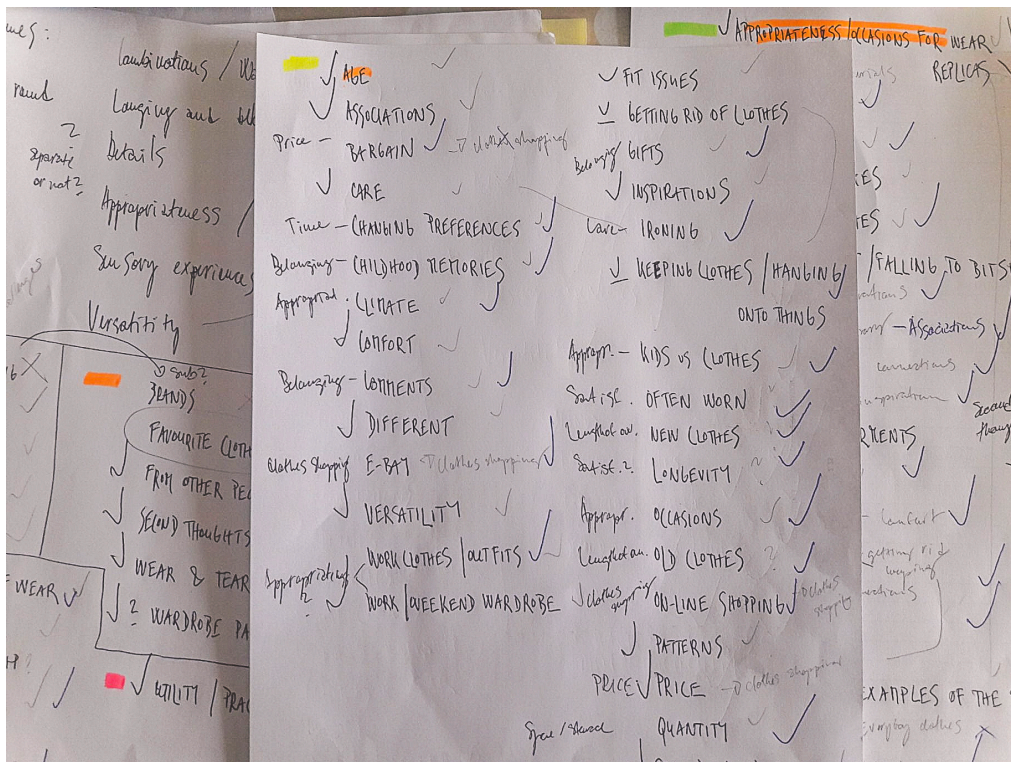 Combinations /
round
Details
?
separate
or not?
Appropriateness /
Sensory experiences
Versatitity
sub?
BRANDS
FAVOURITE CLOTH
FROM OTHER PE
SECOND THOUGHTS
WEAR & TEAR
? WARDROBE PA
F WEAR
UTILITY / PRA
AGE
ASSOCIATIONS
Price — BARGAIN → clothes shopping
CARE
Time — CHANGING PREFERENCES
Belonging — CHILDHOOD MEMORIES
Appropriat. CLIMATE
COMFORT
Belonging — COMMENTS
DIFFERENT
Clothes shopping E-BAY → clothes shopping
VERSATILITY
WORK CLOTHES / OUTFITS
?
WORK / WEEKEND WARDROBE
FIT ISSUES
GETTING RID OF CLOTHES
Belonging/ GIFTS
INSPIRATIONS
Care — IRONING
KEEPING CLOTHES / HANGING
ONTO THINGS
Appropr. — KIDS VS CLOTHES
Satisf. OFTEN WORN
NEW CLOTHES
Satisf.? LONGEVITY
Appropr. OCCASIONS
OLD CLOTHES ?
clothes shopping ON-LINE SHOPPING → clothes shopping
PATTERNS
PRICE PRICE → clothes shopping
QUANTITY
APPROPRIATENESS / OCCASIONS FOR WEAR
REPLICAS
/ FALLING TO BITS
— Associations
connections
inspiration
Second
RMENTS
— Comfort
getting rid
EXAMPLES OF THE
Everyday clothes